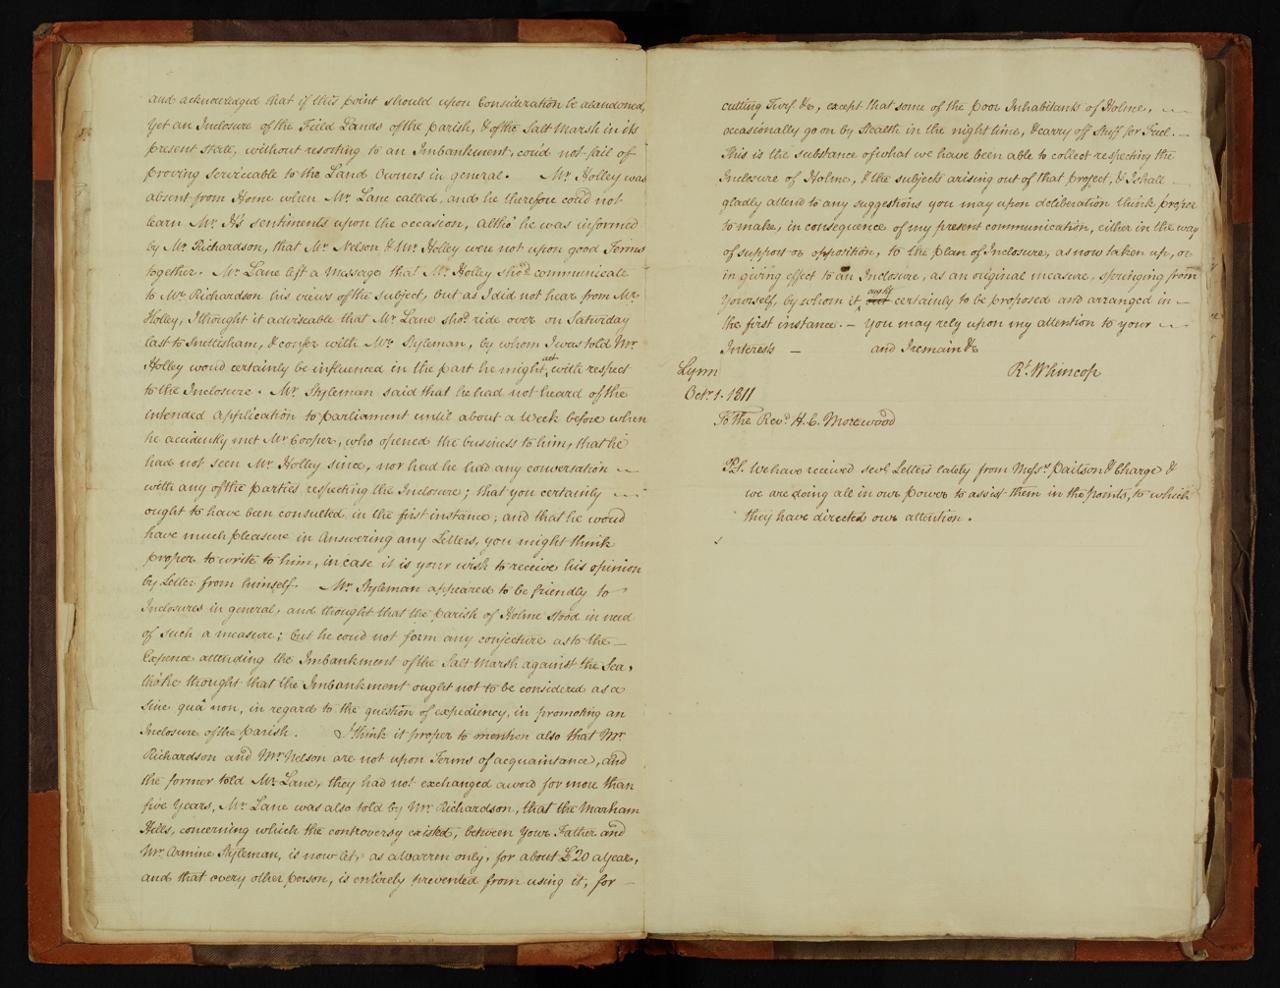 and acknowledged that if this point should upon Consideration be abandoned,
yet an Inclosure of the Field Lands of the parish, & of the Salt Marsh in its
present state, without resorting to an Imbankment, could not fail of
proving serviceable to the Land Owners in general. Mr. Holley was
absent from Home when Mr. Lane called, and he therefore could not
learn Mr. H's sentiments upon the occasion, altho' he was informed
by Mr. Richardson, that Mr. Nelson & Mr. Holley were not upon good Terms
together. Mr. Lane left a Message that Mr. Holley sho'd communicate
to Mr. Richardson his views of the subject, but as I did not hear from Mr.
Holley, I thought it adviseable that Mr. Lane sho'd ride over on Saturday
last to Snettisham, & confer with Mr. Styleman, by whom I was told Mr.
Holley would certainly be influenced in the part he might act with respect
to the Inclosure. Mr. Styleman said that he had not heard of the
intended application to parliament until about a Week before when
he accidently met Mr Cooper, who opened the bussiness to him, that he
had not seen Mr. Holley since, nor had he had any conversation
with any of the parties respecting the Inclosure; that you certainly
ought to have been consulted in the first instance; and that he would
have much pleasure in Answering any Letters, you might think
proper to write to him, in case it is your wish to receive his opinion
by Letter from himself. Mr. Styleman appeared to be friendly to
Inclosures in general, and thought that the parish of Holme stood in need
of such a measure; but he could not form any conjecture as to the
Expence attending the Imbankment of the Salt Marsh against the Sea,
tho' he thought that the Imbankment ought not to be considered as a
sine quâ non, in regard to the question of expediency, in promoting an
Inclosure of the parish. I think it proper to mention also that Mr.
Richardson and Mr. Nelson are not upon Terms of acquaintance, and
the former told Mr. Lane, they had not exchanged a word for more than
five Years, Mr. Lane was also told by Mr. Richardson, that the Marham
Hills, concerning which the controversy existed, between your Father and
Mr. Armine Styleman, is now let, as a Warren only, for about £20 a Year,
and that every other person, is entirely prevented from using it; for
cutting Turf &c, except that some of the poor Inhabitants of Holme,
occasionally go on by Stealth in the night time, & carry off Stuff for Fuel.
This is the substance of what we have been able to collect respecting the
Inclosure of Holme, & the subjects arising out of that project, & I shall
gladly attend to any suggestions you may upon deliberation think proper
to make, in consequence of my present communication, either in the way
of support or opposition, to the plan of Inclosure, as now taken up, or
in giving effect to an Inclosure, as an original measure, springing from
Yourself, by whom it ought certainly to be proposed and arranged in
the first instance. – You may rely upon my attention to your
Interests – and I remain &c
Rt. Whincop
Lynn
Octr. 1. 1811
To the Revd. H. C. Morewood
PS. We have received sevl. Letters lately from Messrs. & Charge &
we are doing all in our power to assist them in the points, to which
they have directed our attention.